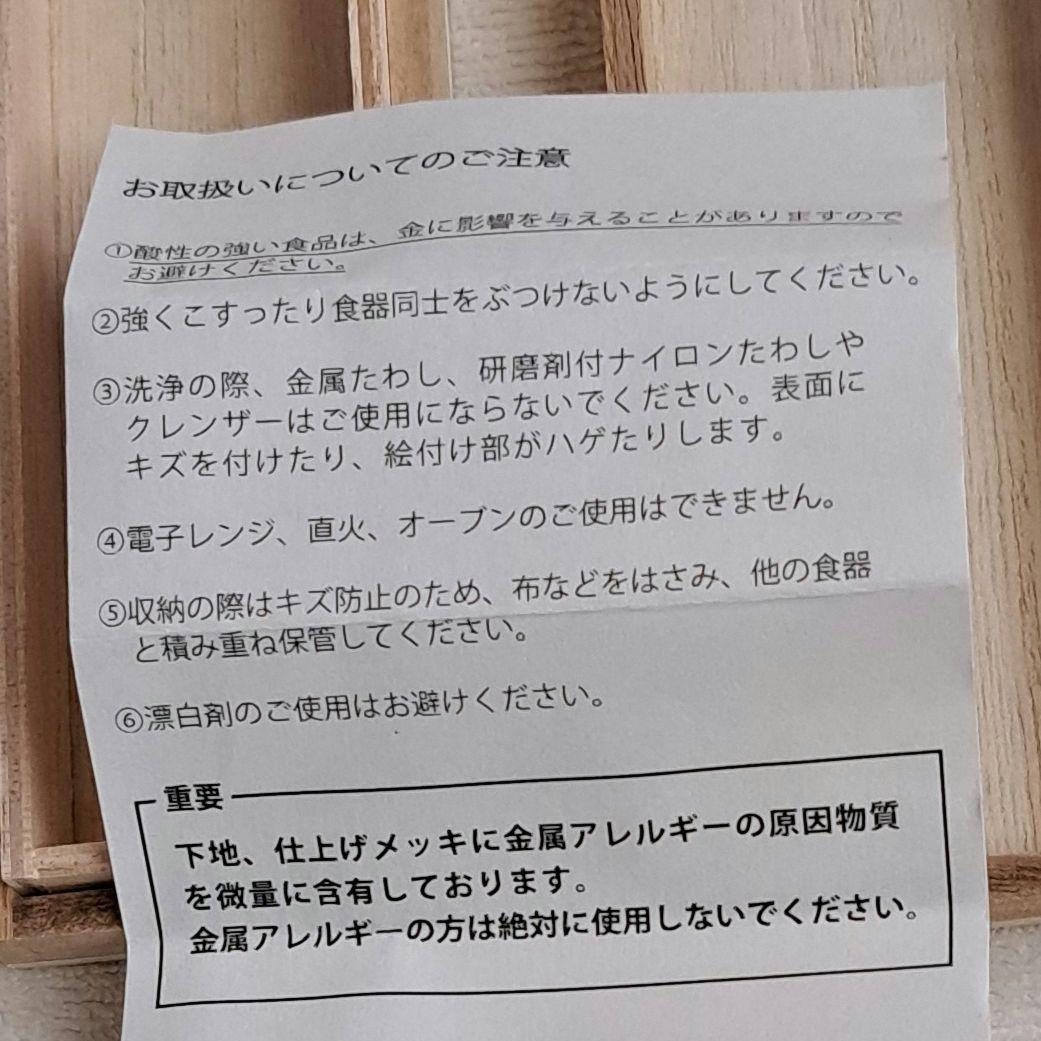 お取扱いについてのご注意
①酸性の強い食品は、金に影響を与えることがありますので
お避けください。
②強くこすったり食器同士をぶつけないようにしてください。
③洗浄の際、金属たわし、研磨剤付ナイロンたわしや
クレンザーはご使用にならないでください。表面に
キズを付けたり、絵付け部がハゲたりします。
④電子レンジ、直火、オーブンのご使用はできません。
⑤収納の際はキズ防止のため、布などをはさみ、他の食器
と積み重ね保管してください。
⑥漂白剤のご使用はお避けください。
重要
下地、仕上げメッキに金属アレルギーの原因物質
を微量に含有しております。
金属アレルギーの方は絶対に使用しないでください。